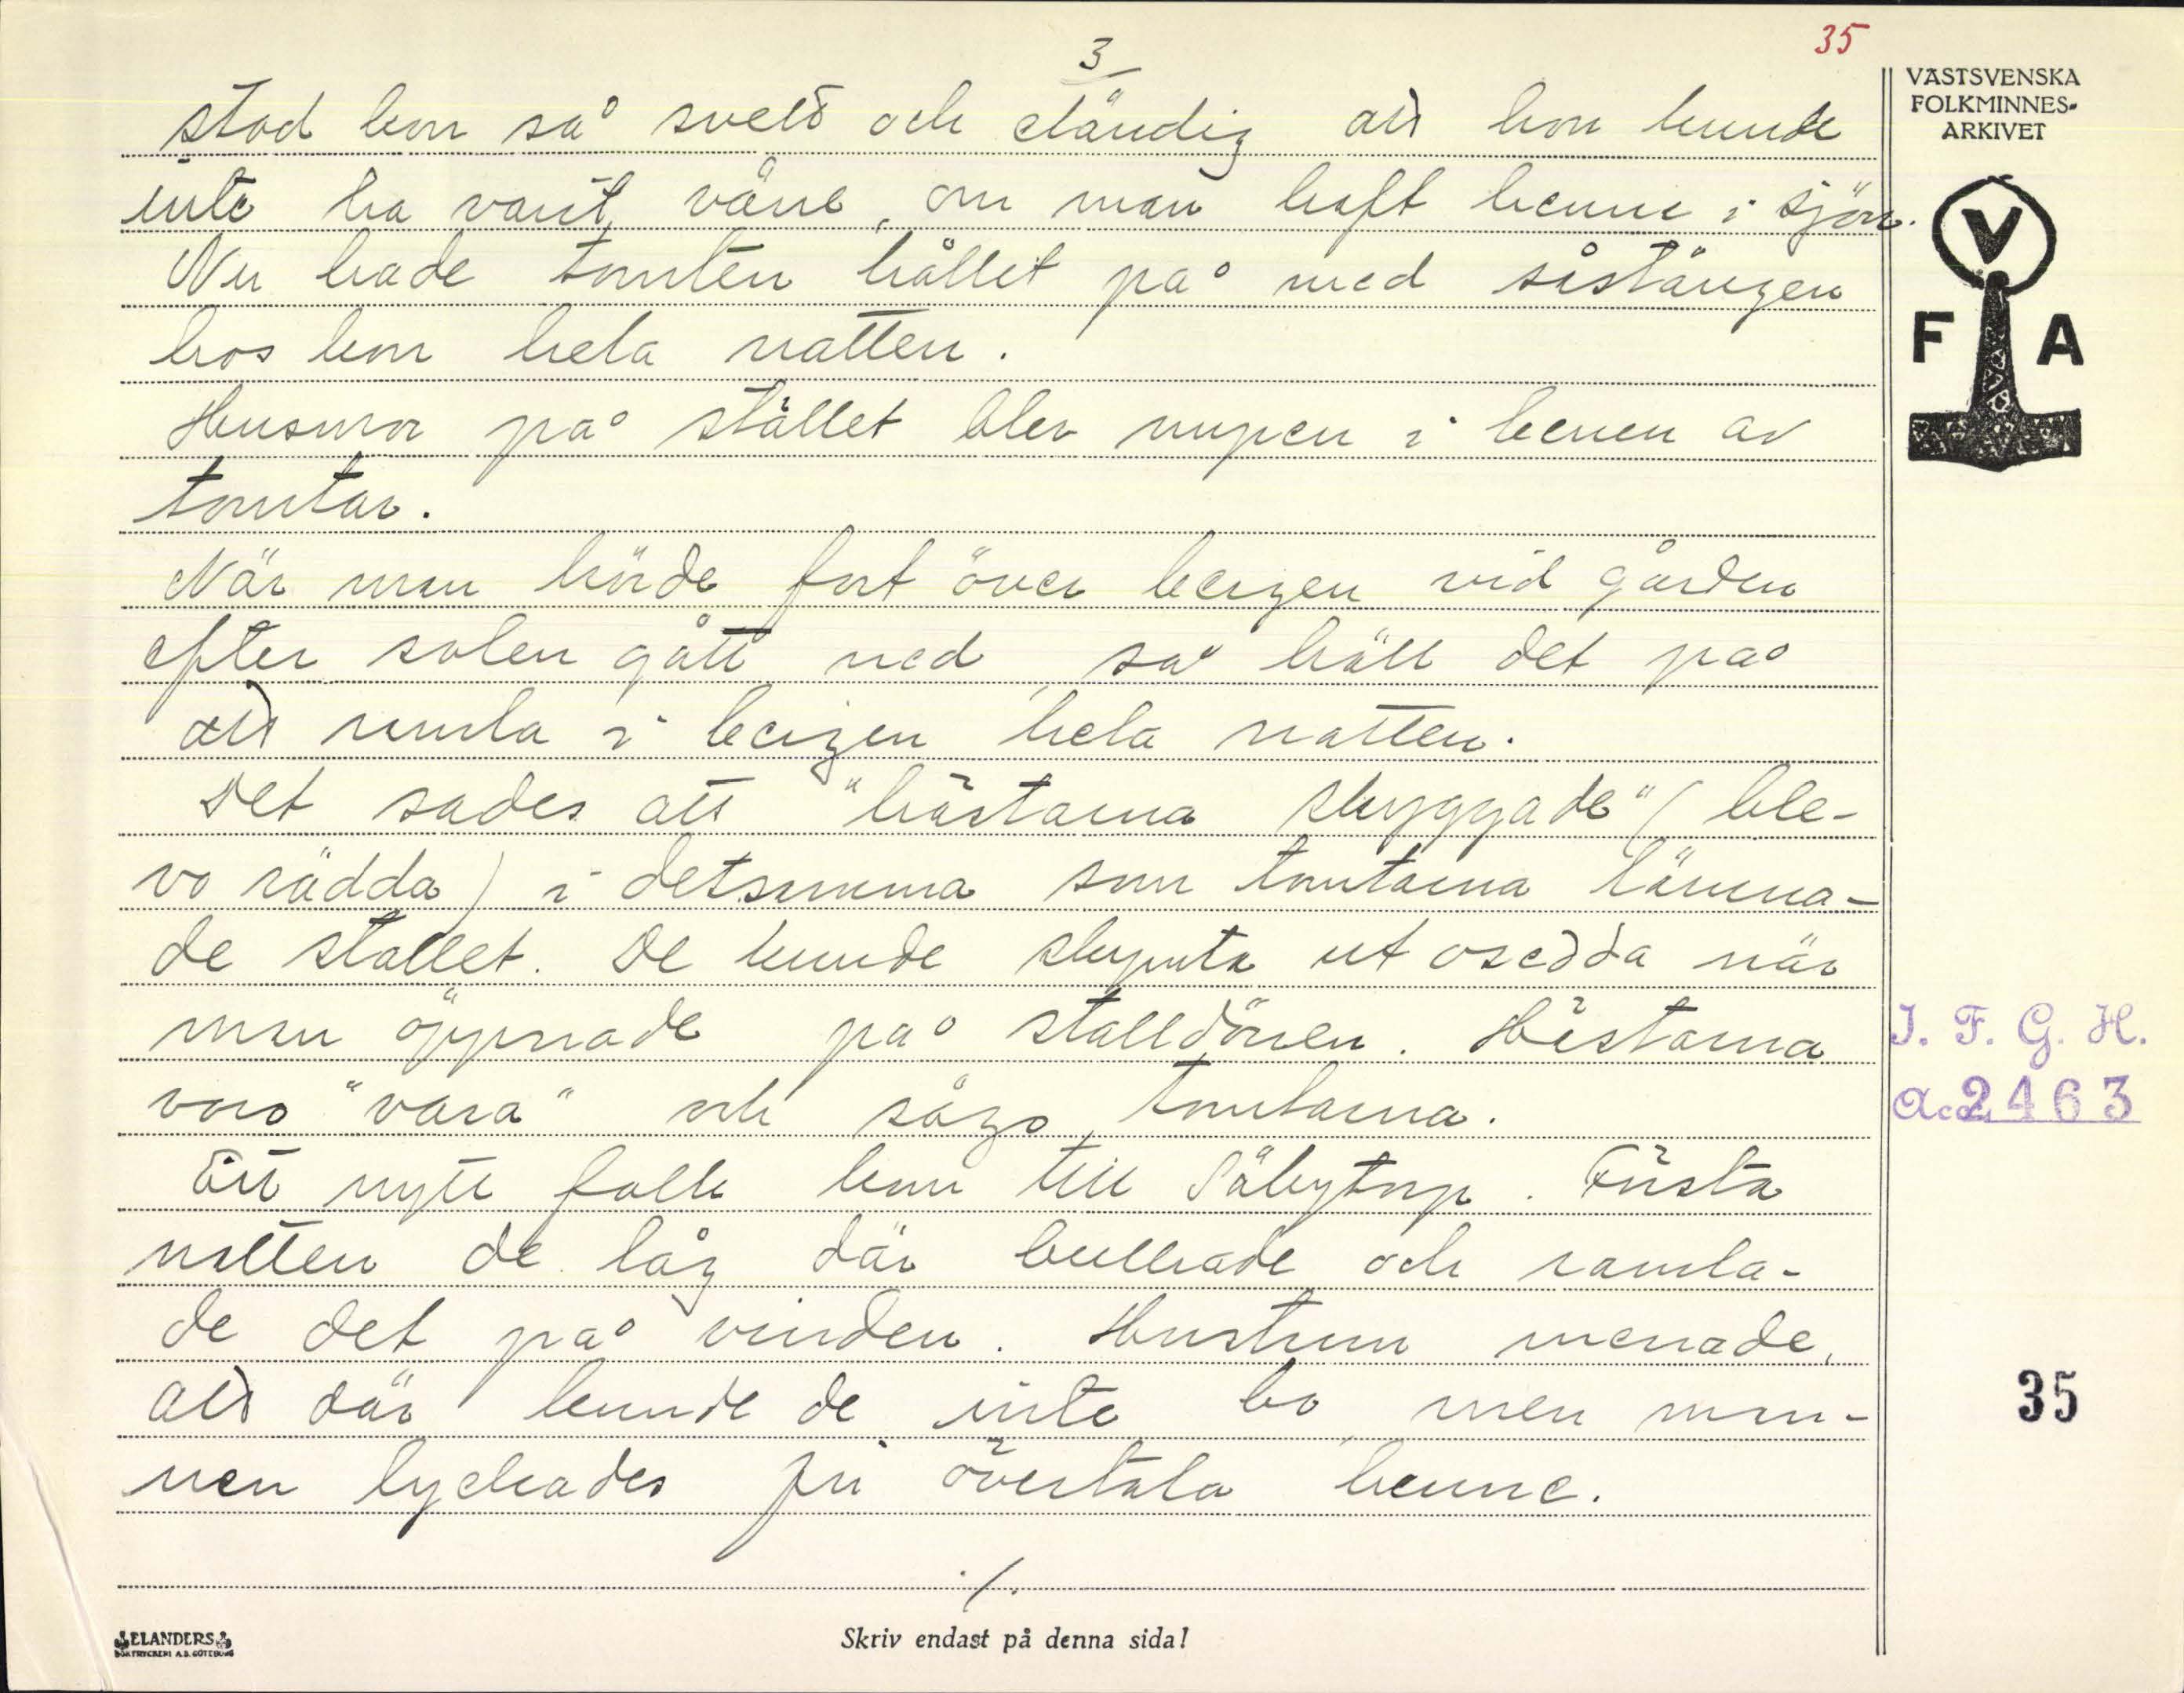 3
35
stod kon så svett och eländig att hon kunde
inte ha varit värre, om man haft henne i sjön.
Nu hade tomten hållet på med såstången
hos kon hela natten.
Husmor på stället blev nupen i benen av
tomtar.
När man hörde fort över bergen vid gården
efter solen gått ned, så höll det på
att ramla i bergen hela natten.
Det sades att "hästarna skyggade" (ble-
vo rädda) i detsamma som tomtarna lämna-
de stallet. De kunde slunta ut osedda när
man öppnade på stalldörren. Hästarna
voro "vara" och sågo tomtarna.
Ett nytt folk kom till Säbytorp. Första
natten de låg där bullrade och ramla-
de det på vinden. Hustrun menade,
att där kunde de inte bo, men man-
nen lyckades få övertala henne.
./.
VÄSTSVENSKA
FOLKMINNES-
ARKIVET
V
F A
I. F. G. H.
Acc. 2463
35
ELANDERS
BOKTRYCKERI A.B. GÖTEBORG
Skriv endast på denna sida!